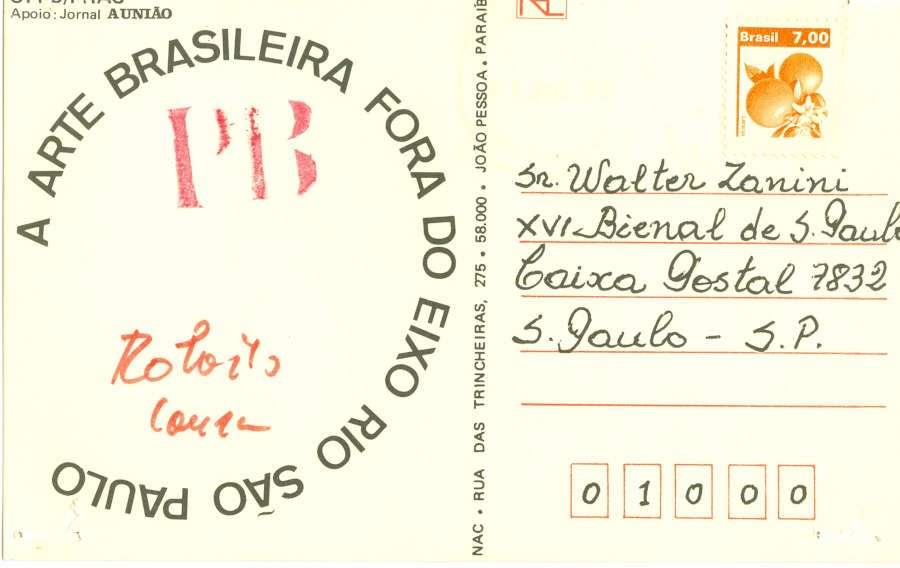 Apoio: Jornal A UNIÃO
A ARTE BRASILEIRA FORA DO EIXO RIO SÃO PAULO
PB
NAC • RUA DAS TRINCHEIRAS, 275 • 58.000 • JOÃO PESSOA • PARAÍB
Brasil 7,00
Sr. Walter Zanini
XVI-Bienal de S. Paulo
Caixa Postal 7832
S. Paulo - S.P.
0 1 0 0 0